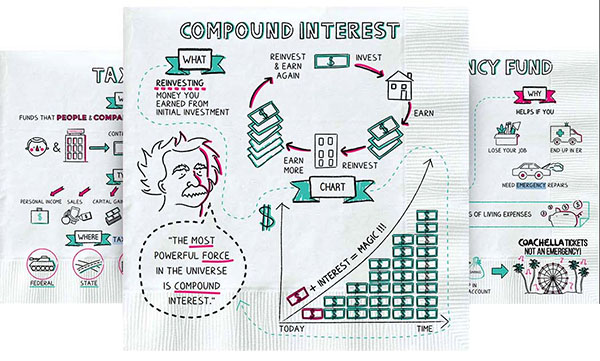 TA
FUNDS THAT PEOPLE & COMPA
&
PERSONAL INCOME
SALES
CAPITAL
WHERE
FEDERAL
STATE
COMPOUND INTEREST
WHAT
REINVESTING
MONEY YOU
EARNED FROM
INITIAL INVESTMENT
REINVEST
& EARN
AGAIN
INVEST
EARN
REINVEST
EARN
MORE
CHART
"THE MOST
POWERFUL FORCE
IN THE UNIVERSE
IS COMPOUND
INTEREST."
$
+ INTEREST = MAGIC !!!
TODAY
TIME
NCY FUND
WHY
HELPS IF YOU
LOSE YOUR JOB
END UP IN ER
NEED EMERGENCY REPAIRS
S OF LIVING EXPENSES
COACHELLA TICKETS
NOT AN EMERGENCY!
IN
ACCOUNT